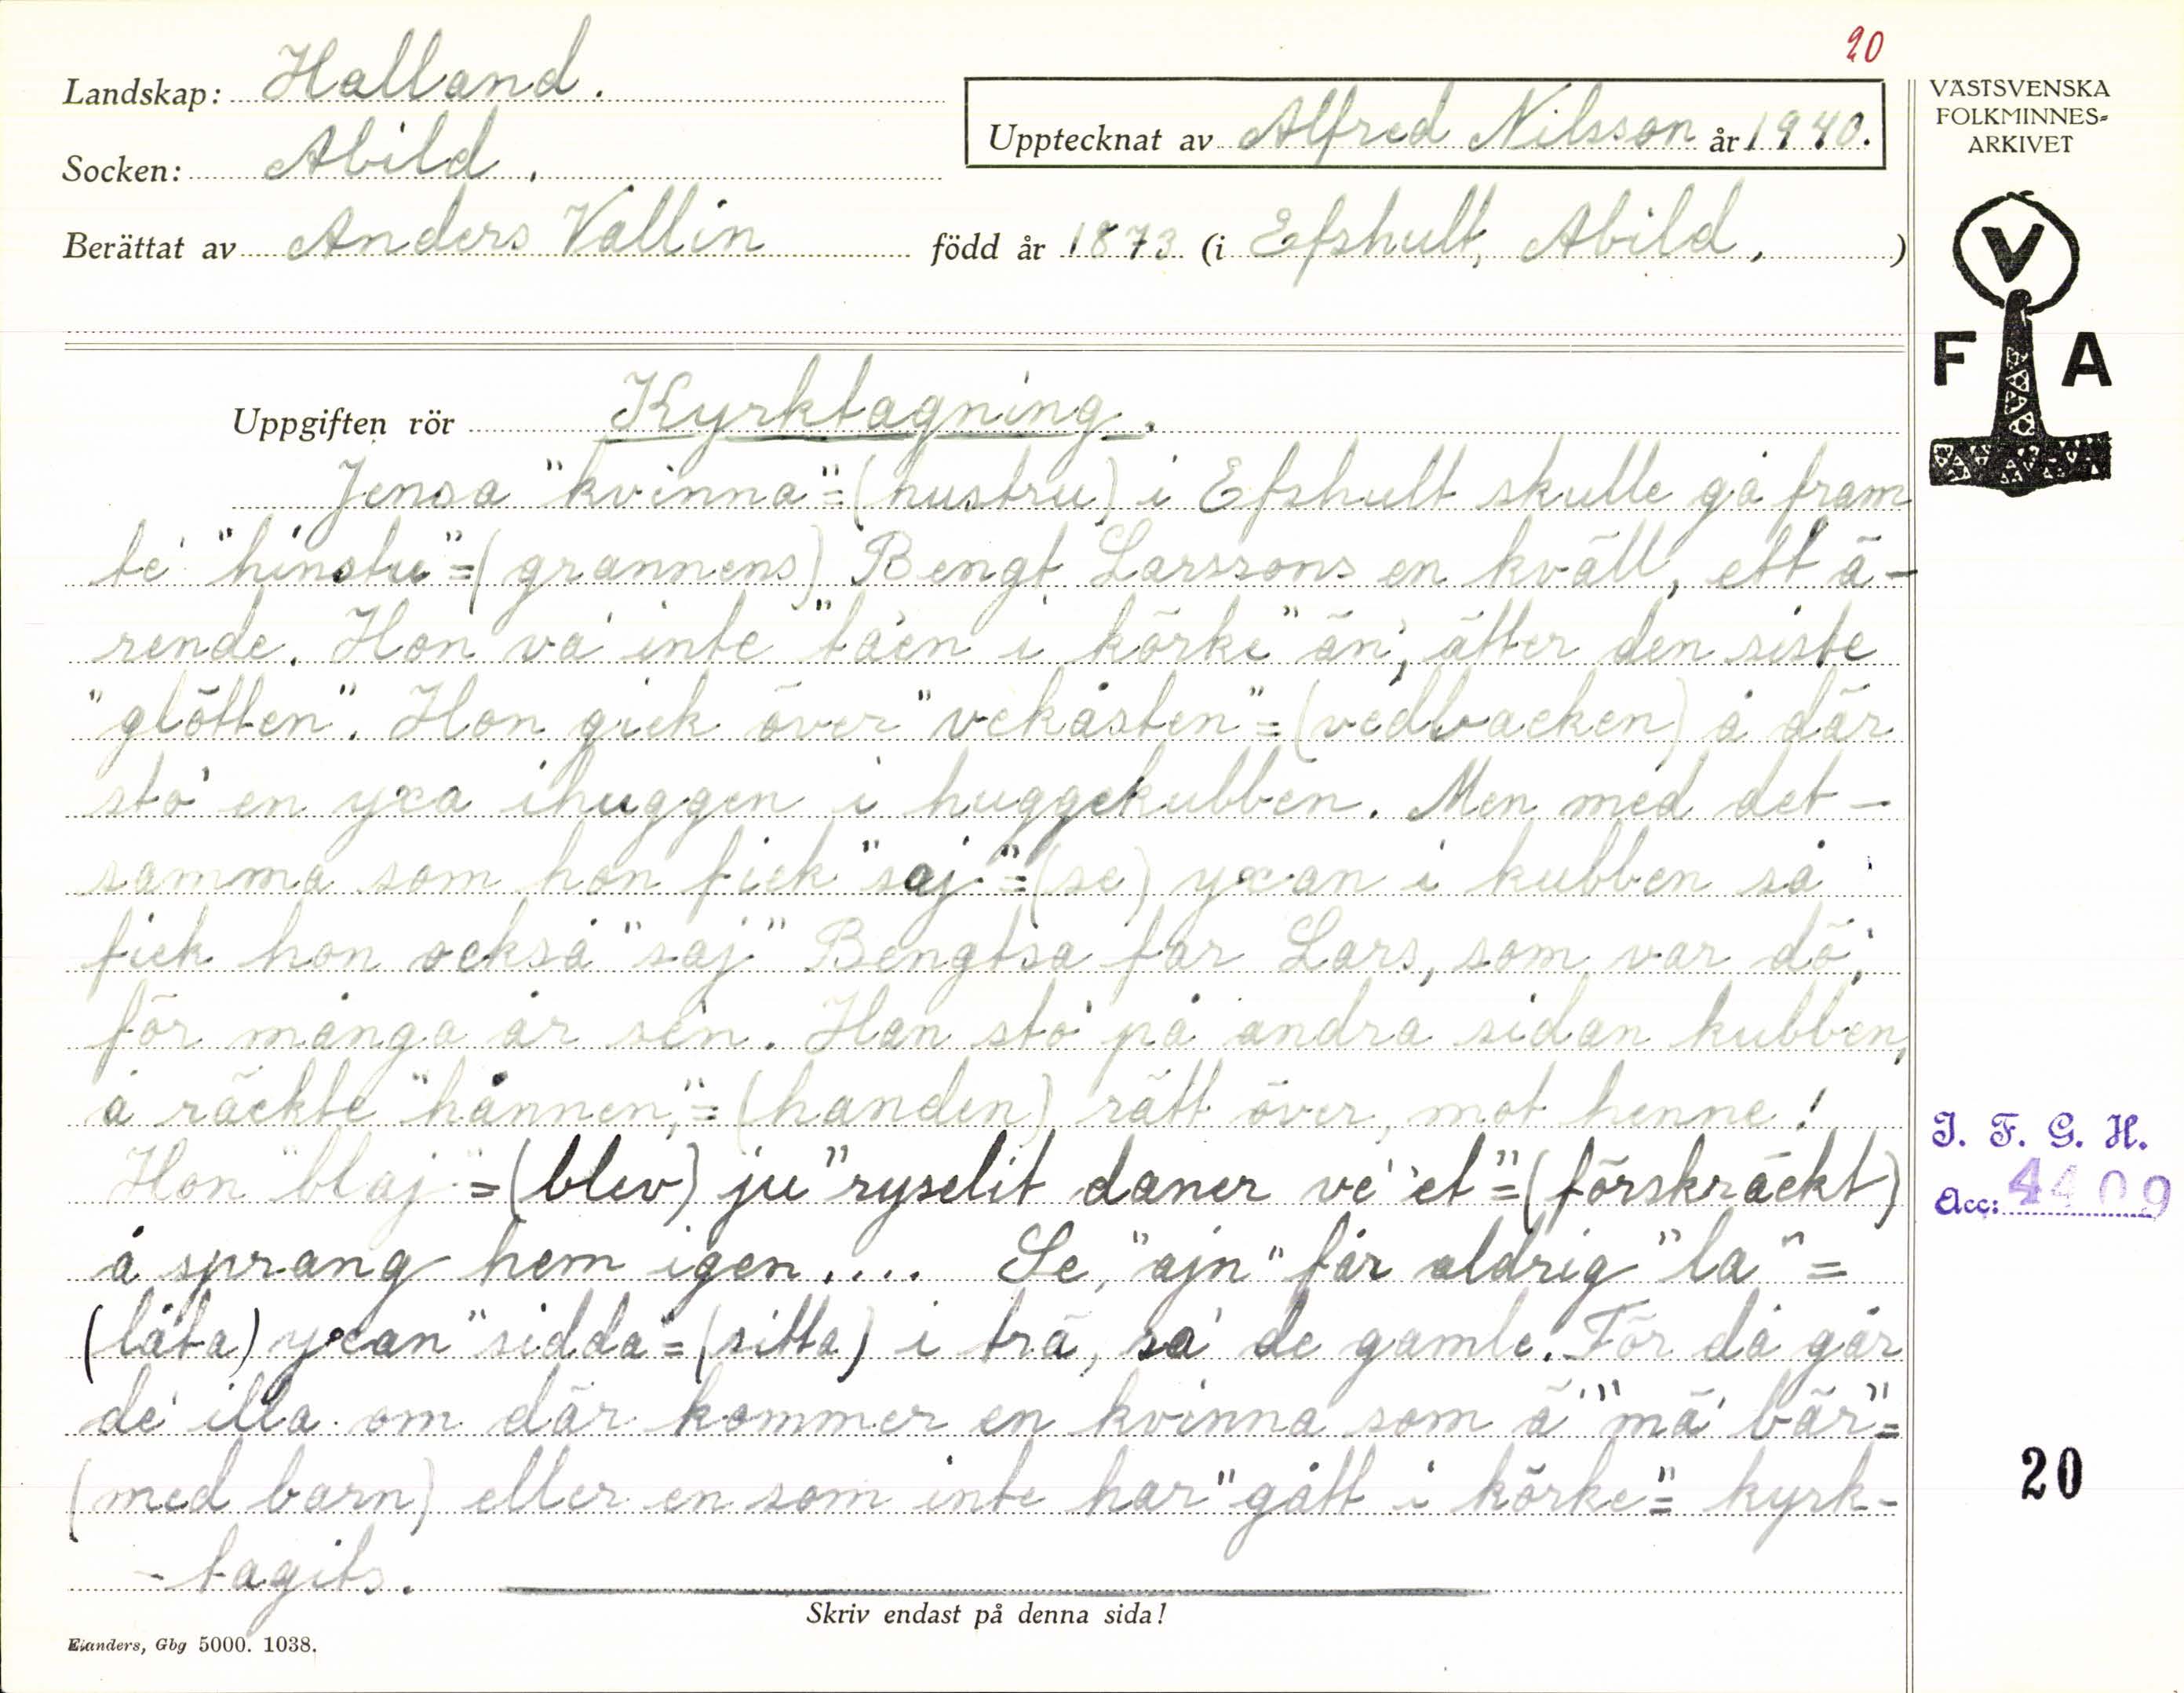 20
Landskap: Halland.
Upptecknat av Alfred Nilsson år 1940.
Socken: Abild.
Berättat av Anders Vallin född år 1873 (i Efshult, Abild.)
VÄSTSVENSKA
FOLKMINNES=
ARKIVET
V
F A
Uppgiften rör Kyrktagning.
Jensa "kvinna"=(hustru) i Efshult skulle gå fram
te' "hinstu"=(grannens) Bengt Larssons en kväll, ett ä-
rende. Hon va' inte "tåen i körke" än, ätter den siste
"glötten". Hon gick över "vekåsten"=(vedbacken) å där
sto' en yxa ihuggen i huggekubben. Men med det-
samma som hon fick "saj"=(se) yxan i kubben så
fick hon också "saj" Bengtsa far Lars, som var dö,
för många år sén. Han sto' på andra sidan kubben,
å räckte "hånnen,"=(handen) rätt över, mot henne!
Hon "blaj"=(blev) ju "ryselit daner ve' 'et"=(förskräckt)
å sprang hem igen.... Se, "ajn" får aldrig "la"=
(låta) yxan "sidda"=(sitta) i trä, sa' de gamle. För då går
de' illa om där kommer en kvinna som ä' "mä' bär"=
(med barn) eller en som inte har "gått i körke"= kyrk-
-tagits.
Skriv endast på denna sida!
Elanders, Gbg 5000. 1038.
I. F. G. H.
Acc: 4409
20